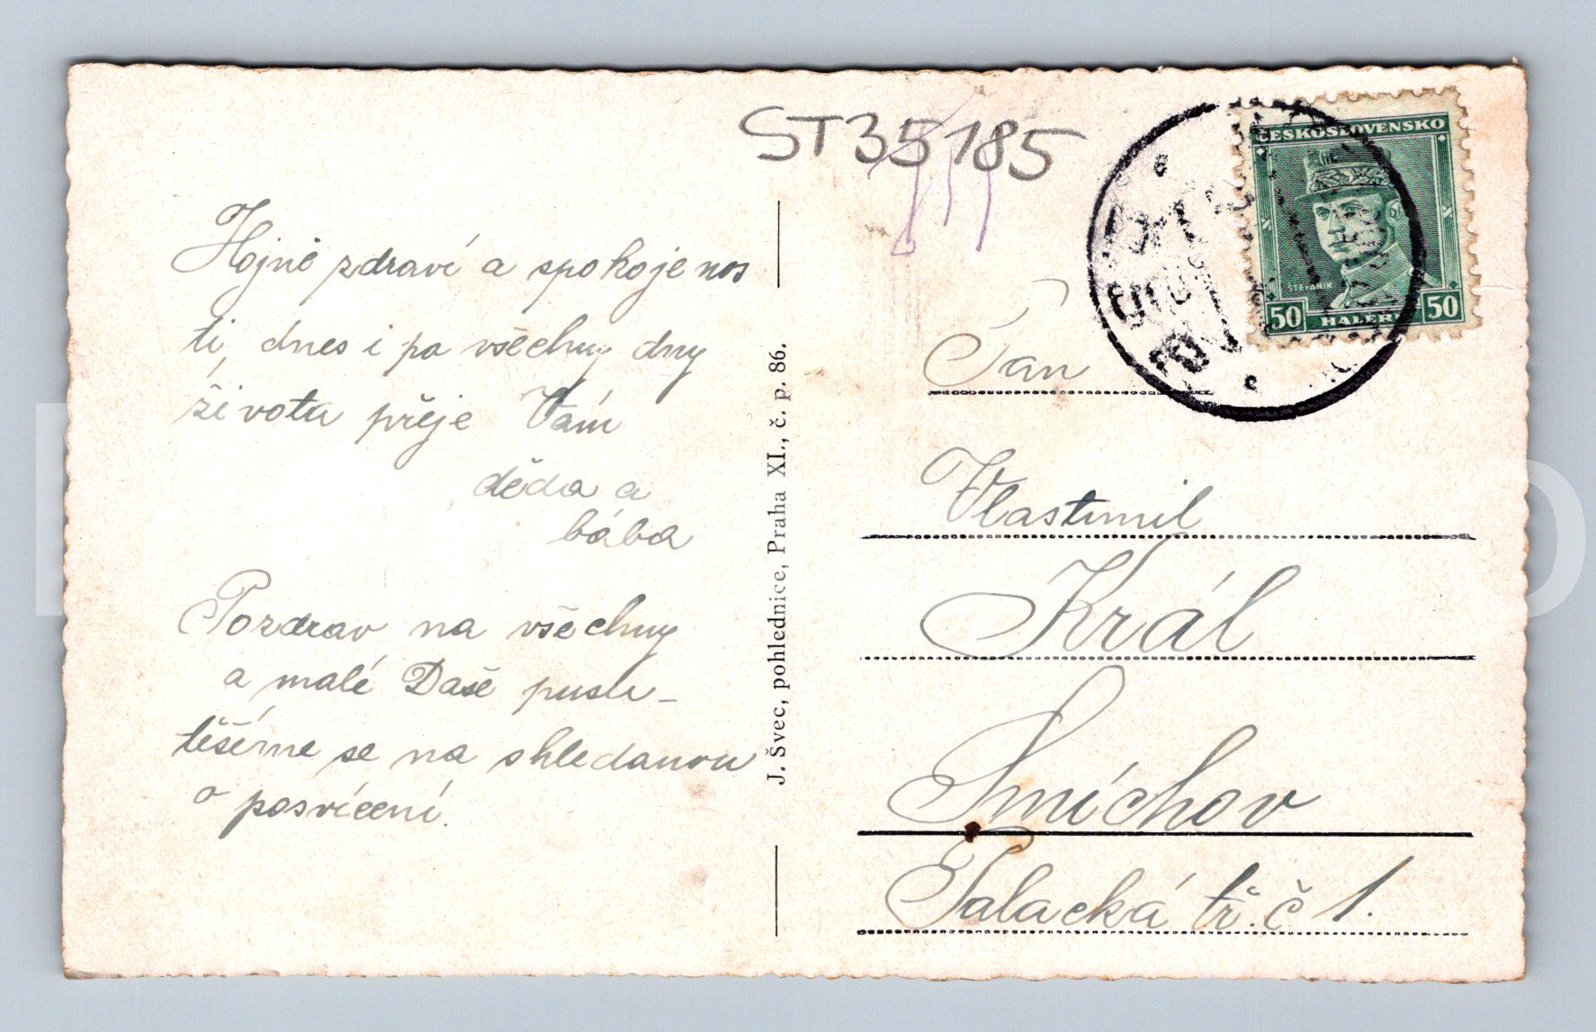 ST35185
Hojně zdraví a spokojenos
ti, dnes i po všechny dny
života přeje Vám
děda a
bába
Pozdrav na všechny
a malé Daše pusu –
těšíme se na shledanou
o posvícení.
J. Švec, pohlednice, Praha XI., č. p. 86.
ČESKOSLOVENSKO
ŠTEFANIK
50 HALÉŘŮ 50
Pan
Vlastimil
Král
Smíchov
Palacká tř. č 1.